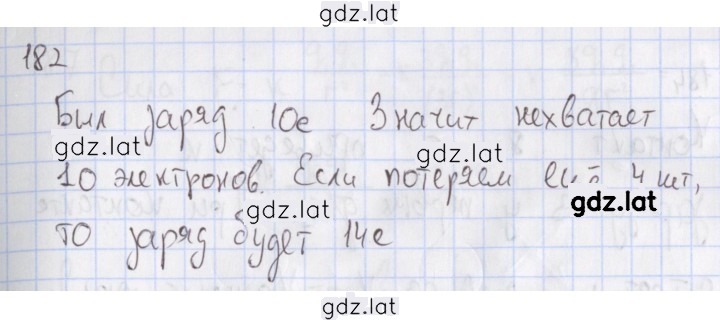 gdz.lat
182
Был заряд 10е Значит нехватает
gdz.lat gdz.lat
10 электронов. Если потеряем ещё 4 шт,
gdz.lat gdz.lat
то заряд будет 14е
gdz.lat